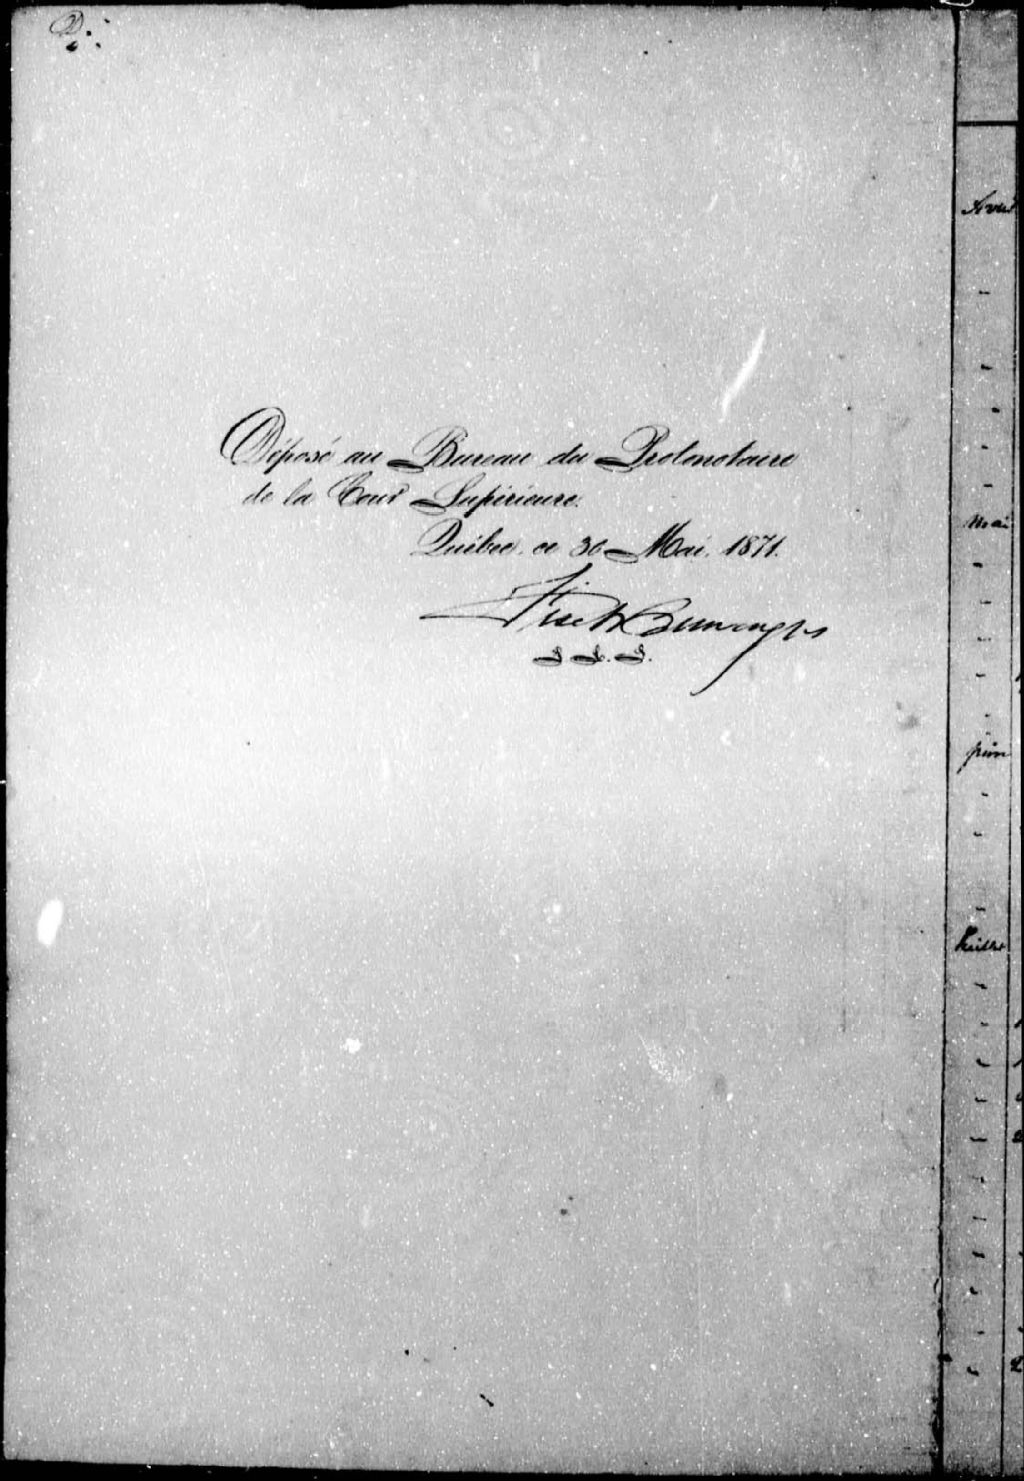 Déposé au Bureau du Protonotaire
de la Cour Supérieure.
Québec, ce 30 Mai, 1871.
Fiset & Burroughs
Avril
Mai
juin
juillet